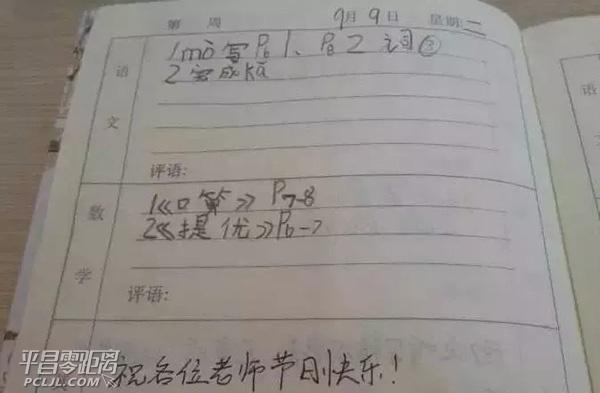 第 周 9月9日 星期:二
语文
1 mò写P61、P62词③
2 完成kǎ
评语:
数学
1《口算》P7-8
2《提优》P6-7
评语:
祝各位老师节日快乐!
平昌零距离
PCLJL.COM
语